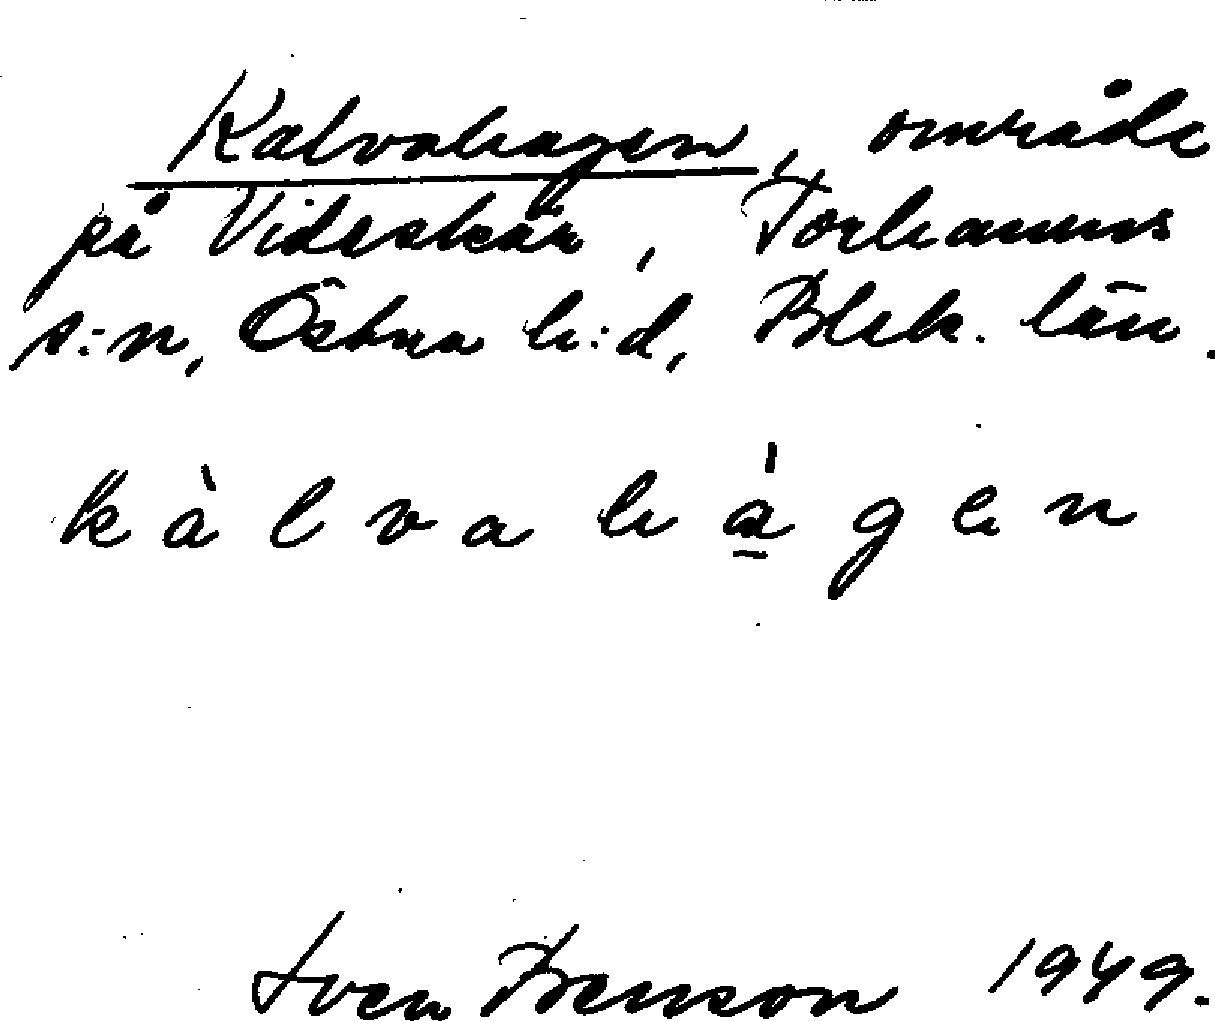 Kalvahagen, område
på Videskär, Torhamns
s:n, Östra h:d, Blek. län.
kàlvahá̱gen
Sven Benson 1949.